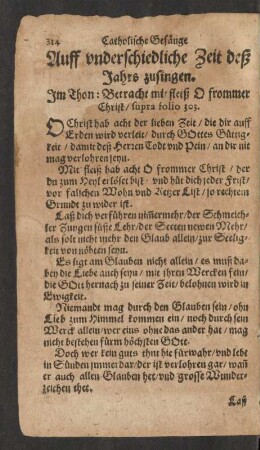 314 Catholische Gesänge
Auff vnderschiedliche Zeit deß
Jahrs zusingen.
Im Thon: Betracht mit fleiß O frommer
Christ / supra folio 303.
O Christ hab acht der lieben Zeit / die dir auff
Erden wird verleit / durch GOttes Gütig-
keit / damit deß Herren Todt vnd Pein / an dir nit
mag verlohren seyn.
Mit fleiß hab acht O frommer Christ / der
du zum Heyl erlöset bist / vnd hüt dich jeder Frist /
vor falschen Wohn vnd Ketzer List / so rechtem
Grundt zu wider ist.
Laß dich verführen nimmermehr / der Schmeich-
ler Zungen süsse Lehr / der Secten newen Mehr /
als solt nicht mehr den Glaub allein / zur Seelig-
keit von nöhten seyn.
Es ligt am Glauben nicht allein / es muß da-
ben die Liebe auch seyn / mit jhren Wercken fein /
die GOtt hernach zu seiner Zeit / belohnen wird in
Ewigkeit.
Niemandt mag durch den Glauben sein / ohn
Lieb zum Himmel kommen ein / noch durch sein
Werck allein / wer eins ohne das ander hat / mag
nicht bestehen fürm höchsten GOtt.
Doch wer kein guts thut hie fürwahr / vnd lebt
in Sünden jmmerdar / der ist verlohren gar / wañ
er auch allen Glauben het / vnd grosse Wunder-
zeichen thet.
Laß